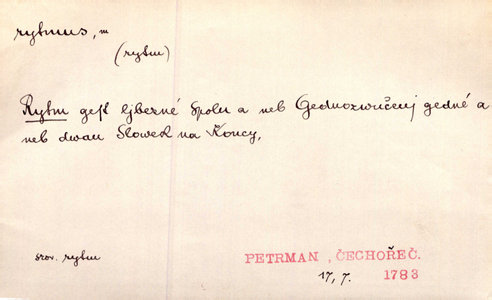 rytmus, m
(rytm)
Rytm gest ljbezné spolu a neb Gednozwučenj gedné a
neb dwau Slowek na Koncy,
srov. rytm
PETRMAN, ČECHOŘEČ.
17, 7. 1783